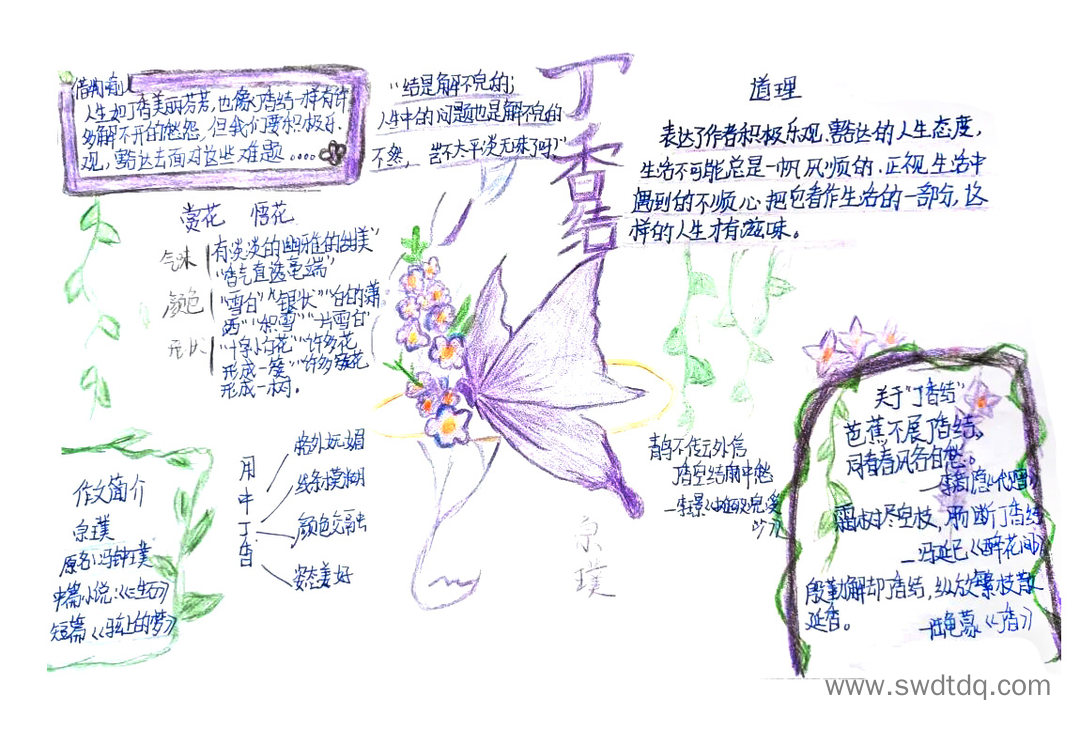 丁香结
宗璞
借物喻人
人生如丁香美丽芬芳，也像丁香结一样有许
多解不开的愁怨，但我们要积极乐
观，豁达去面对这些难题....
“结是解不完的；
人生中的问题也是解不完的
不然，岂不太平淡无味了吗”
道理
表达了作者积极乐观、豁达的人生态度，
生活不可能总是一帆风顺的，正视生活中
遇到的不顺心把它看作生活的一部分，这
样的人生才有滋味。
赏花 悟花
气味
有淡淡的幽雅的甜美”
“香气直透毫端”
颜色
“雪白”“银状”“白的潇
洒”“积雪”“一片雪白”
形状
“十字小白花”“许多花
形成一簇”“许多簇花
形成一树。
作文简介
宗璞
原名：冯钟璞
中篇小说：《三生石》
短篇《弦上的梦》
雨中丁香
格外妩媚
线条模糊
颜色交融
姿态美好
青鸟不传云外信
丁香空结雨中愁
—李璟《摊破浣溪
沙》
关于“丁香结”
芭蕉不展丁香结、
同向春风各自愁。
—李商隐《代赠》
霜树尽空枝，肠断丁香结
—冯延巳《醉花间》
殷勤解却丁香结，纵放繁枝散
延香。
—陆龟蒙《丁香》
www.swdtdq.com